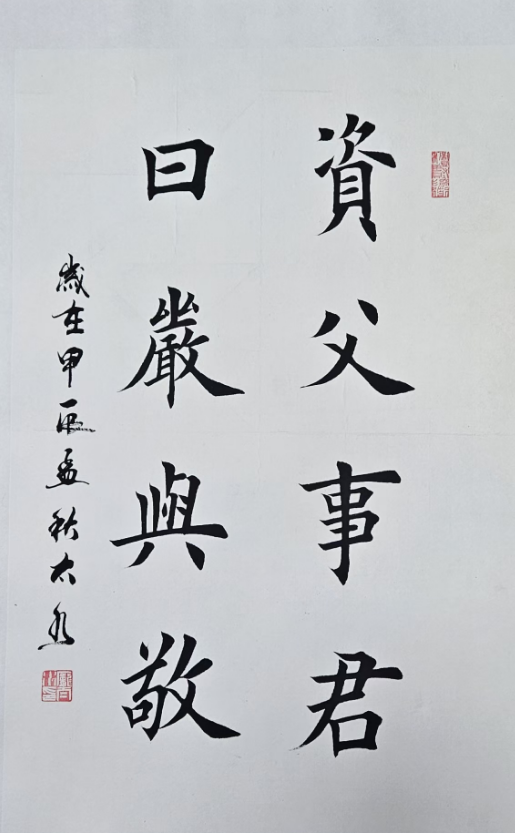 資父事君
曰嚴與敬
歲在甲辰孟秋大